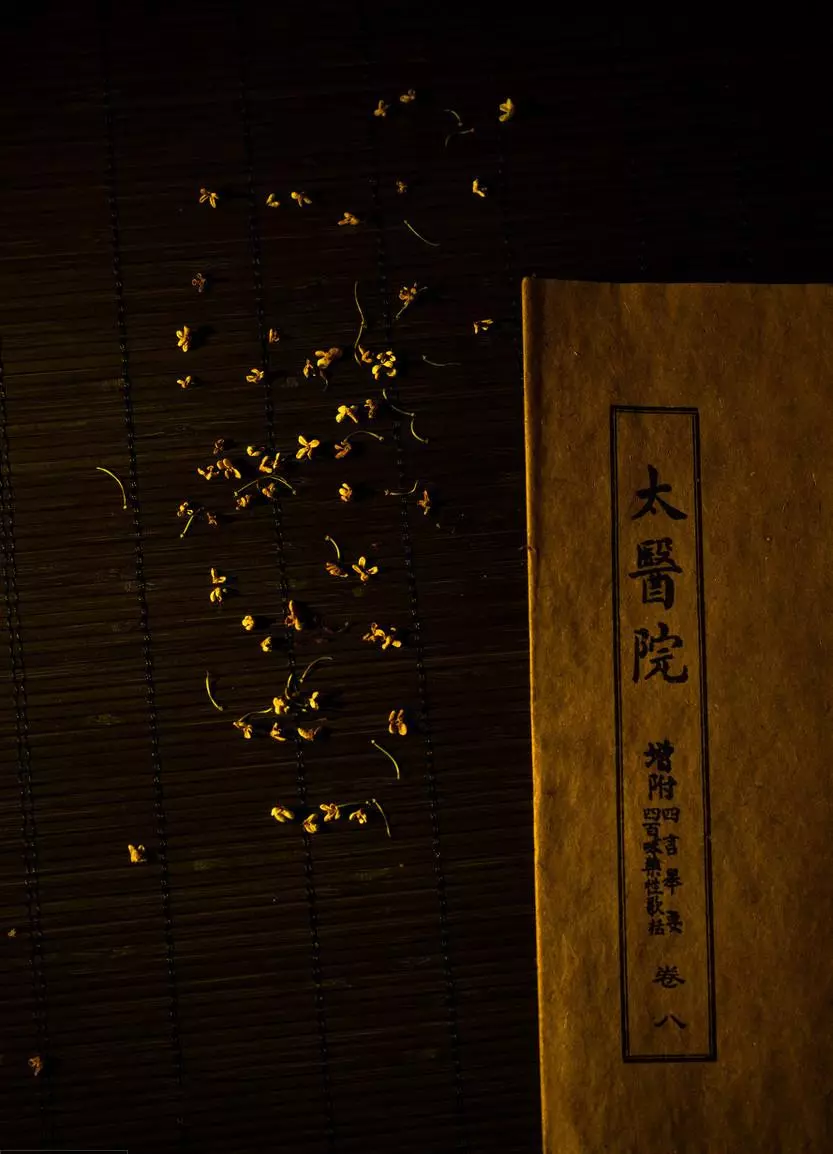 太醫院
增附
四言舉要
四百味藥性歌括
卷八